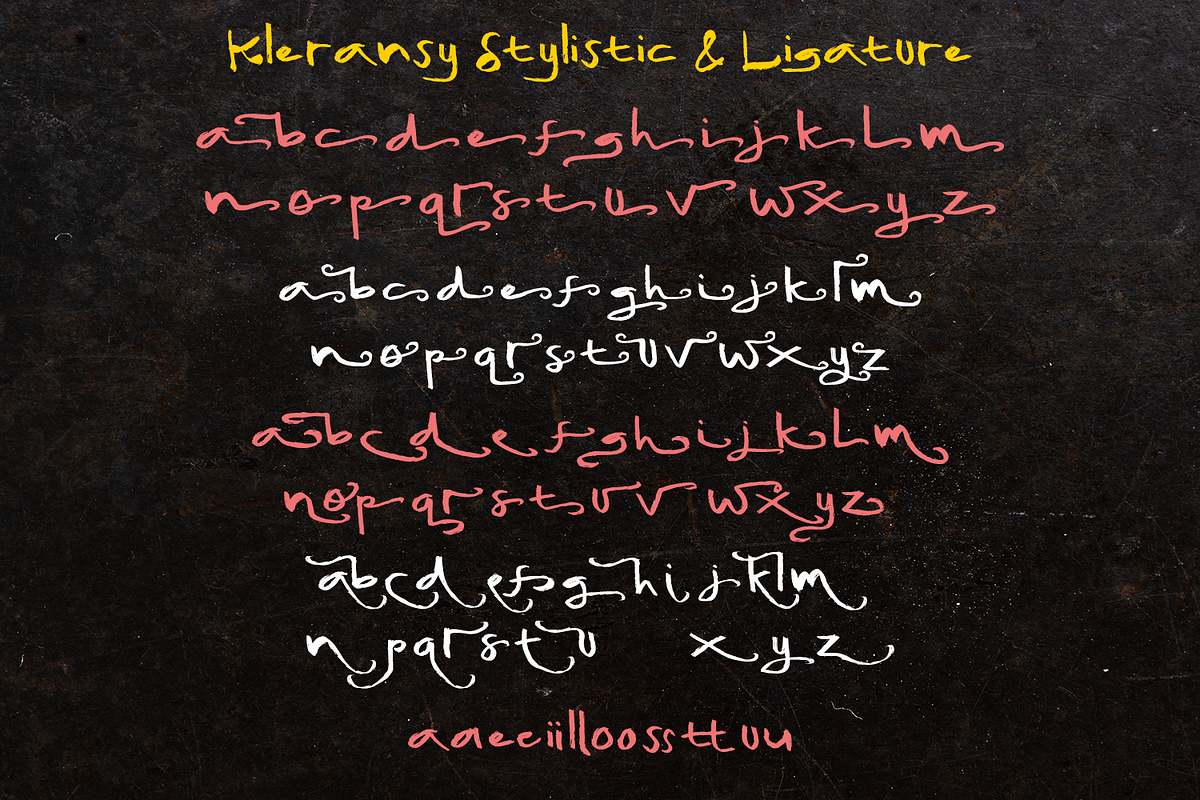 Kleransy Stylistic & Ligature
abcdefghijklm
nopqrstuvwxyz
abcdefghijklm
nopqrstuvwxyz
abcdefghijklm
nopqrstuvwxyz
abcdefghijklm
npqrstu xyz
aaeeiilloossttuu